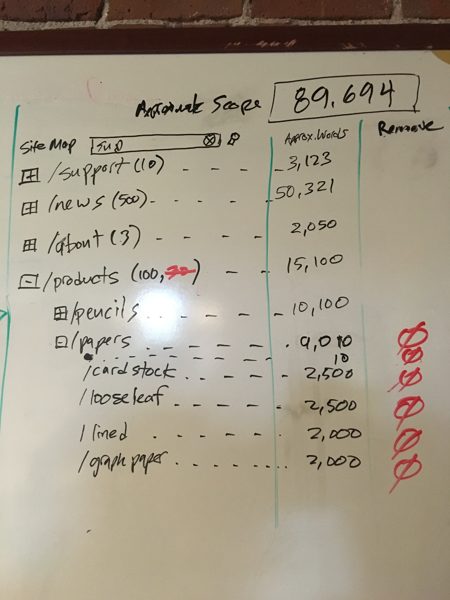 Approximate Scope 89,694
Site Map sup Approx. Words Remove
/support (10) - - - - 3,123
/news (500) - - - - - 50,321
/about (3) - - - - 2,050
/products (100, ) - - 15,100
/pencils - - - - 10,100
/papers - - - - 9,010
- - - - - - - - 10
/cardstock - - - - 2,500
/looseleaf - - - - 2,500
/lined - - - - 2,000
/graph paper - - - - 2,000